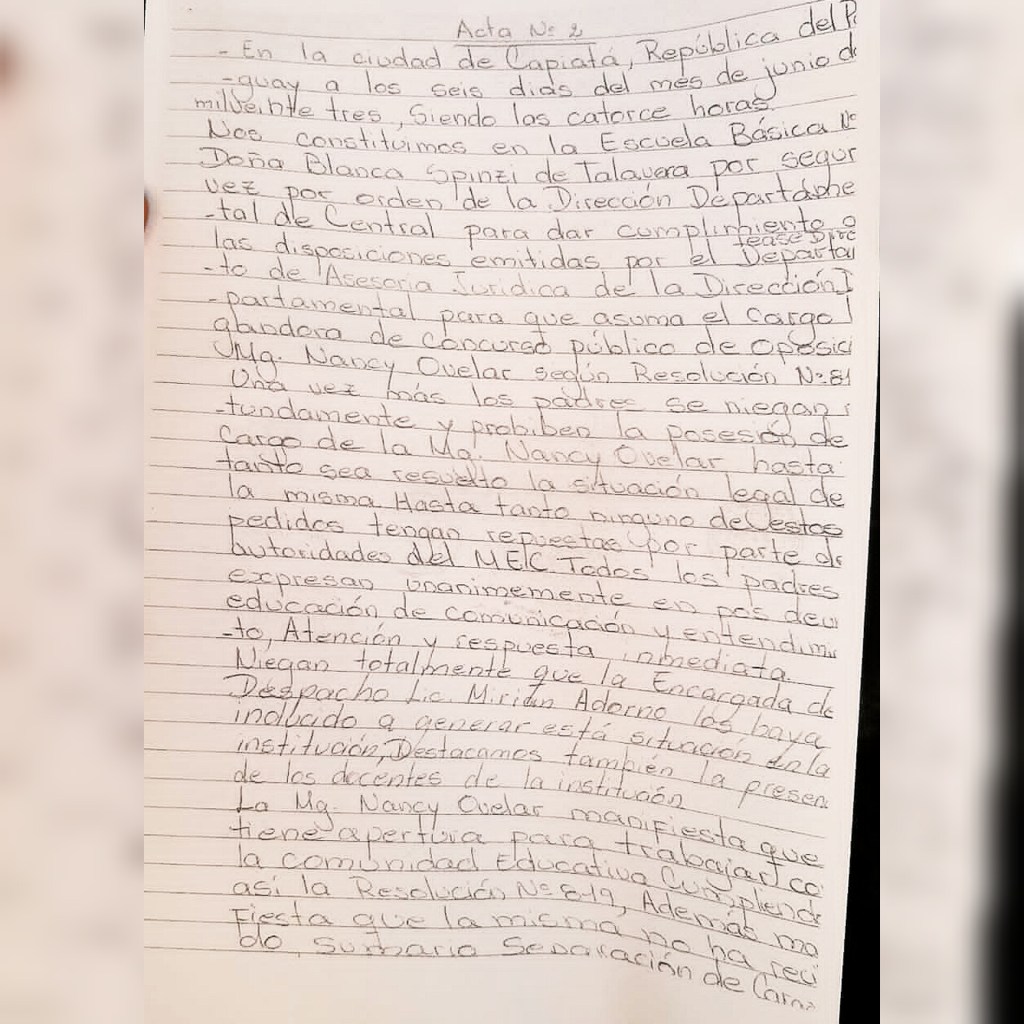 Acta Nº 2
- En la ciudad de Capiatá, República del P
-guay a los seis dias del mes de junio d
milveinte tres, Siendo las catorce horas.
Nos constituimos en la Escuela Básica Nº
Doña Blanca Spinzi de Talavera por segun
vez por orden de la Dirección Departame
-tal de Central para dar cumplimiento a
las disposiciones emitidas por el Departa
-to de Asesoria Juridica de la Dirección
-partamental para que asuma el Cargo
ganadora de concurso público de Oposici
Mg. Nancy Ovelar según Resolución Nº 81
Una vez más los padres se niegan
-tundamente y prohiben la posesión de
Cargo de la Mg. Nancy Ovelar hasta
tanto sea resuelto la situación legal de
la misma Hasta tanto ninguno de estos
pedidos tengan repuestas por parte de
autoridades del MEC Todos los padres
expresan unanimemente en pos de u
educación, de comunicación y entendimi
-to, Atención y respuesta inmediata.
Niegan totalmente que la Encargada de
Despacho Lic. Mirian Adorno los haya
inducido a generar está situación en la
institución, Destacamos también la presen
de los docentes de la institución
La Mg. Nancy Ovelar manifiesta que
tiene apertura para trabajar co
la comunidad Educativa Cumpliendo
así la Resolución Nº 819, Además ma
Fiesta que la misma no ha reci
do, sumario Separación de Cargo